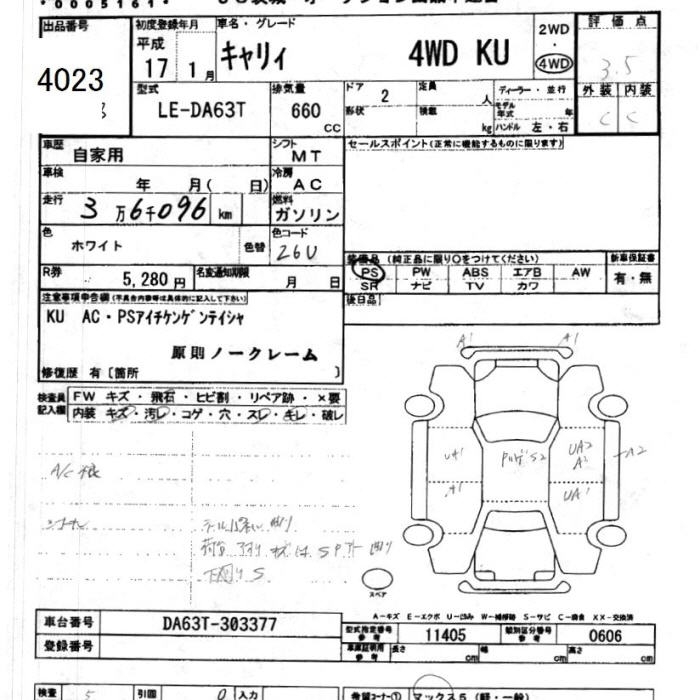 ・0005161・
出品番号 初度登録年月 車名・グレード 2WD 評価点
平成 キャリィ 4WD KU ・
4023 17 1月 4WD 3.5
型式 排気量 ドア 2 定員 人 ディーラー・並行 外装 内装
LE-DA63T 660 cc 形状 積載 kg モデル年式 年 C C
ハンドル 左・右
車歴 自家用 シフト MT セールスポイント(正常に機能するものに限ります)
車検 年 月( 日) 冷房 AC
走行 3万6千096 km 燃料 ガソリン
色 ホワイト 色替 色コード 26U
装備品 (純正品に限り○をつけてください) 新車保証書
PS PW ABS エアB AW 有・無
SR ナビ TV カワ
R券 5,280円 名変通知期限 月 日 後日品
注意事項申告欄(不具合内容等は具体的に記入して下さい)
KU AC・PSアイチケンゲンテイシャ
原則ノークレーム
修復歴 有〔箇所 〕
検査員記入欄 FW キズ・飛石・ヒビ割・リペア跡・×要
内装 キズ・汚レ・コゲ・穴・スレ・キレ・破レ
A1 A1
UA1 S2 UA2 A2 A2
A1 UA1
スペア
A-キズ E-エクボ U-凹み W-補修跡 S-サビ C-腐食 XX-交換済
車台番号 DA63T-303377 型式指定番号 参考 11405 類別区分番号 参考 0606
登録番号 車庫証明用 参考 長さ cm 幅 cm 高さ cm
検査 5 引回 0 入力 希望コーナー① マックス5(軽・一般)